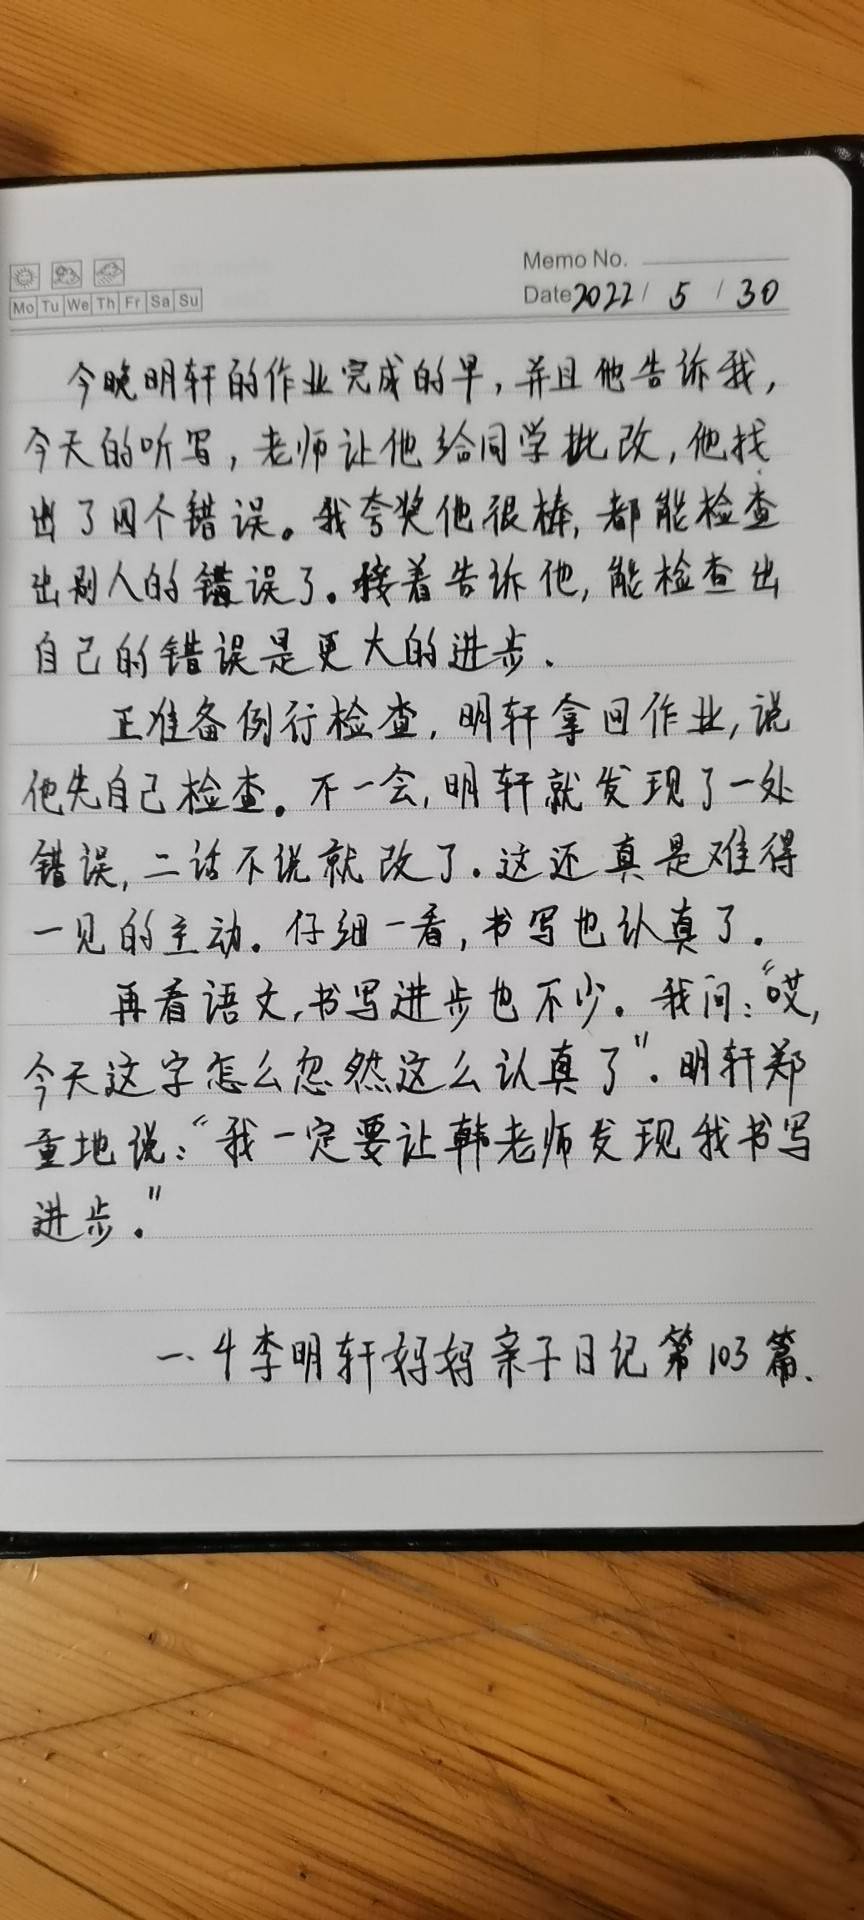 Memo No.
Mo Tu We Th Fr Sa Su
Date 2022 / 5 / 30
今晚明轩的作业完成的早，并且他告诉我，
今天的听写，老师让他给同学批改，他找
出了四个错误。我夸奖他很棒，都能检查
出别人的错误了。接着告诉他，能检查出
自己的错误是更大的进步.
正准备例行检查，明轩拿回作业，说
他先自己检查。不一会，明轩就发现了一处
错误，二话不说就改了.这还真是难得
一见的主动。仔细一看，书写也认真了.
再看语文，书写进步也不少。我问：“哎，
今天这字怎么忽然这么认真了”.明轩郑
重地说：“我一定要让韩老师发现我书写
进步.”
一.4李明轩妈妈亲子日记第103篇.